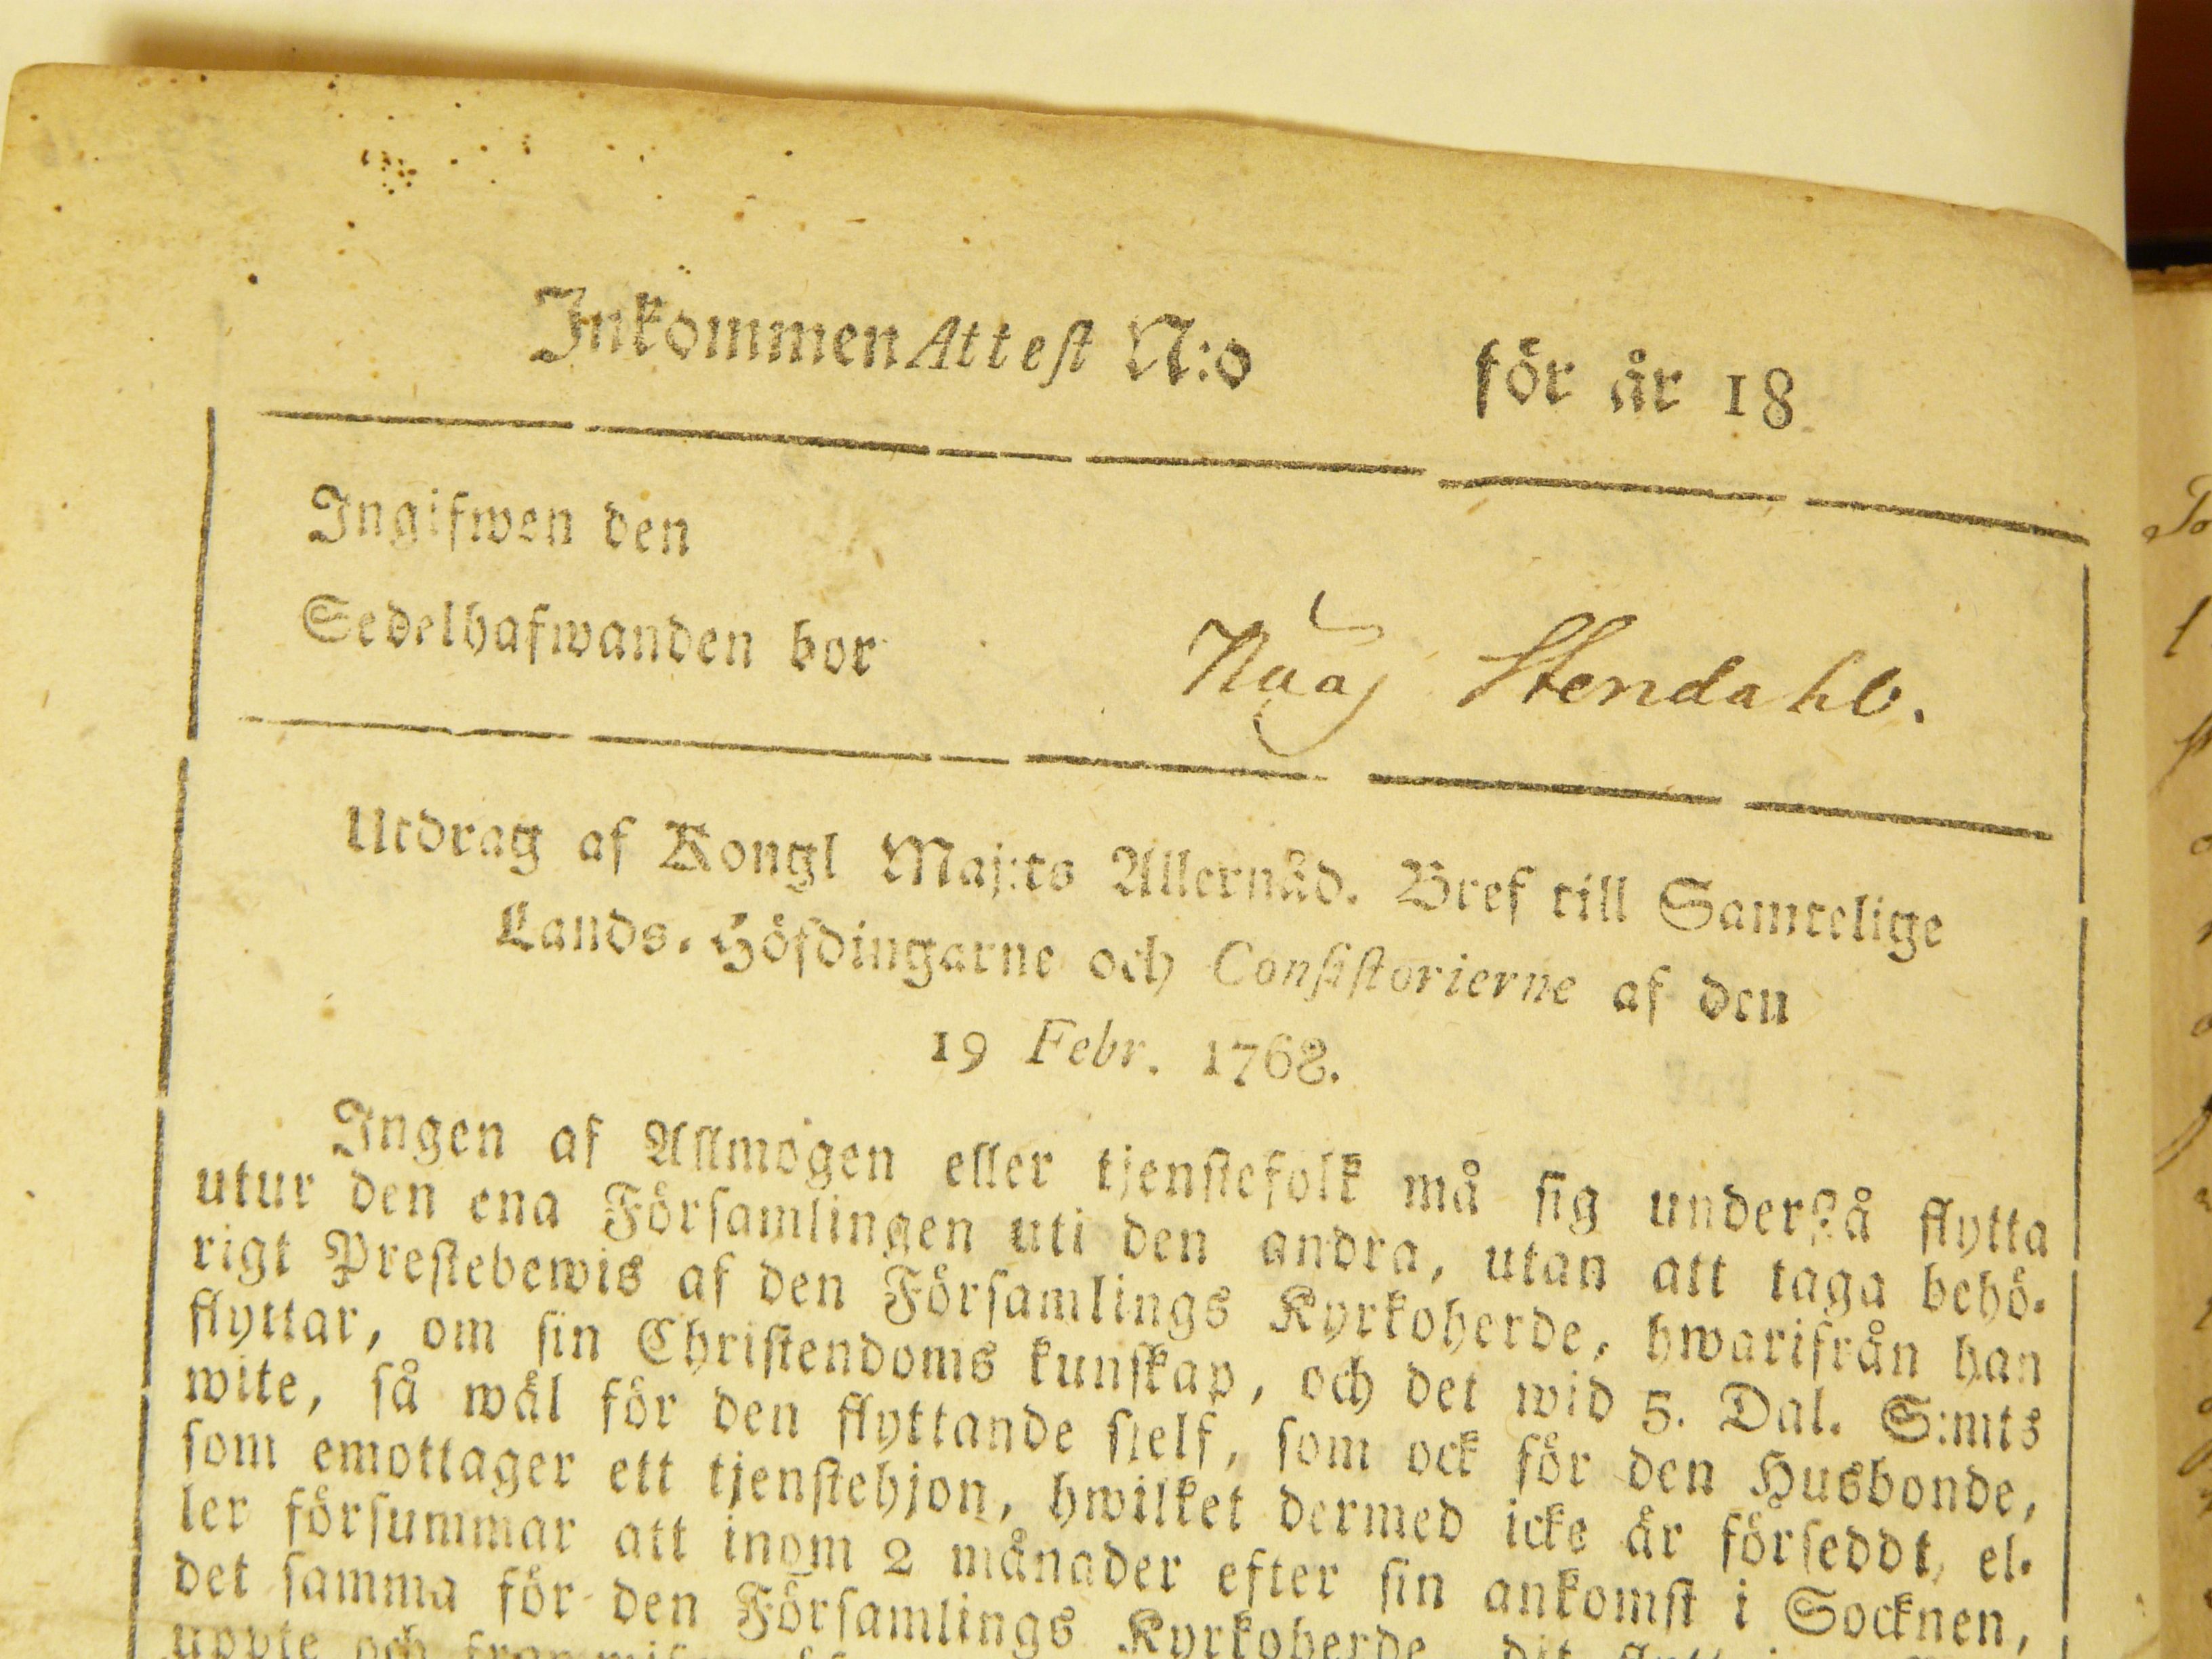 Inkommen Attest N:o för år 18
Ingifwen den
Sedelhafwanden bor Stendahl.
Utdrag af Kongl Maj:ts Allernåd. Bref till Samtelige
Lands-Höfdingarne och Consistorierne af den
19 Febr. 1768.
Ingen af Allmogen eller tjenstefolk må sig understå flytta
utur den ena Församlingen uti den andra, utan att taga behö-
rigt Prestebewis af den Församlings Kyrkoherde, hwarifrån han
flyttar, om sin Christendoms kunskap, och det wid 5. Dal. S:mts
wite, så wäl för den flyttande sjelf, som ock för den Husbonde,
som emottager ett tjenstehjon, hwilket dermed icke är förseddt, el-
ler försummar att inom 2 månader efter sin ankomst i Socknen,
det samma för den Församlings Kyrkoherde, dit
uppte och